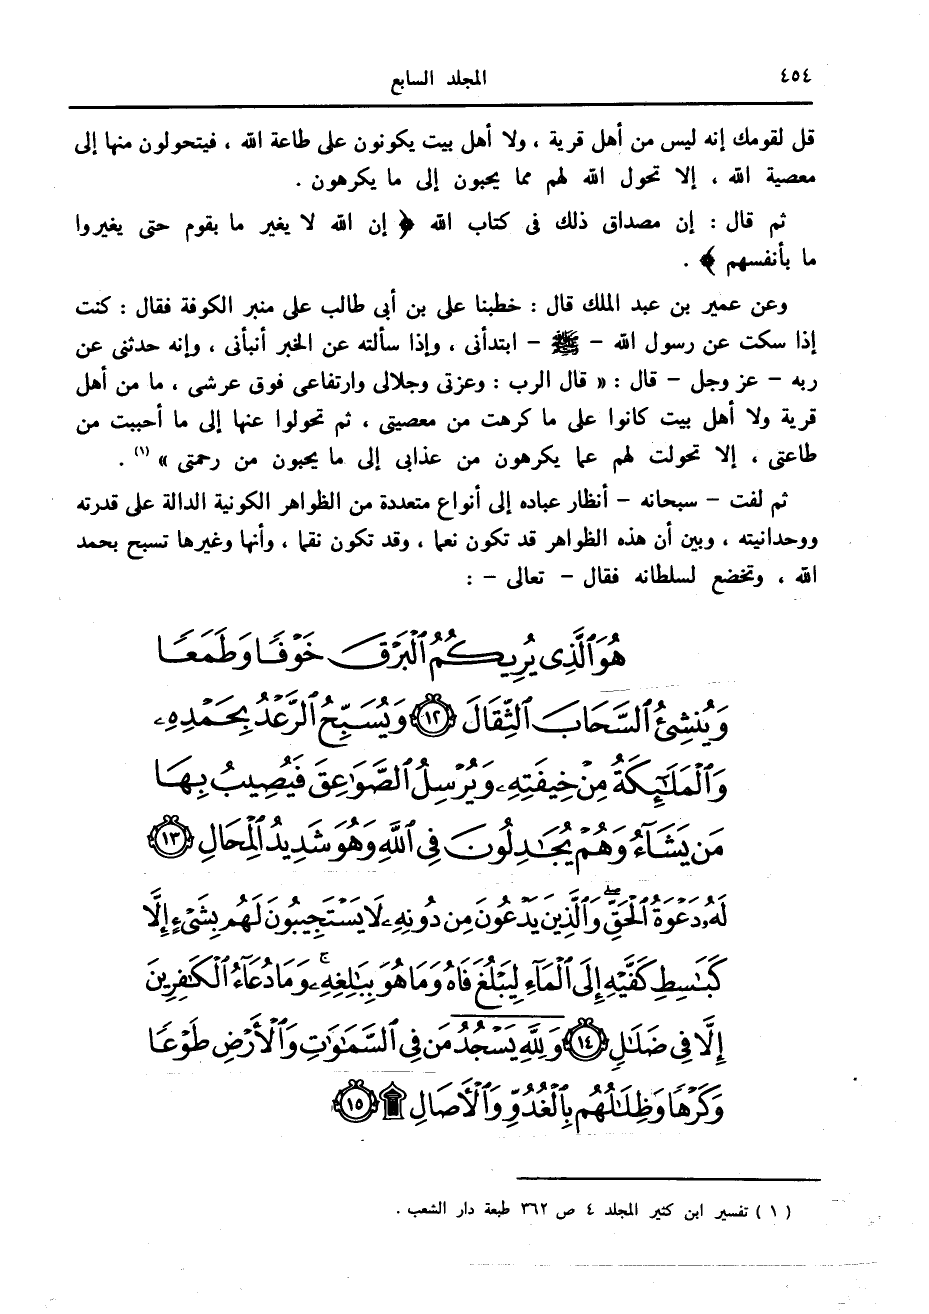 ٤٥٤ المجلد السابع
قل لقومك إنه ليس من أهل قرية ، ولا أهل بيت يكونون على طاعة الله ، فيتحولون منها إلى
معصية الله ، إلا تحول الله لهم مما يحبون إلى ما يكرهون .
ثم قال : إن مصداق ذلك فى كتاب الله ﴿ إن الله لا يغير ما بقوم حتى يغيروا
ما بأنفسهم ﴾ .
وعن عمير بن عبد الملك قال : خطبنا على بن أبى طالب على منبر الكوفة فقال : كنت
إذا سكت عن رسول الله – ﷺ – ابتدأنى ، وإذا سألته عن الخبر أنبأنى ، وإنه حدثنى عن
ربه – عز وجل – قال : « قال الرب : وعزتى وجلالى وارتفاعى فوق عرشى ، ما من أهل
قرية ولا أهل بيت كانوا على ما كرهت من معصيتى ، ثم تحولوا عنها إلى ما أحببت من
طاعتى ، إلا تحولت لهم عما يكرهون من عذابى إلى ما يحبون من رحمتى » (١) .
ثم لفت – سبحانه – أنظار عباده إلى أنواع متعددة من الظواهر الكونية الدالة على قدرته
ووحدانيته ، وبين أن هذه الظواهر قد تكون نعما ، وقد تكون نقما ، وأنها وغيرها تسبح بحمد
الله ، وتخضع لسلطانه فقال – تعالى – :
هُوَ ٱلَّذِى يُرِيكُمُ ٱلْبَرْقَ خَوْفًا وَطَمَعًا
وَيُنشِئُ ٱلسَّحَابَ ٱلثِّقَالَ ١٢ وَيُسَبِّحُ ٱلرَّعْدُ بِحَمْدِهِۦ
وَٱلْمَلَٰٓئِكَةُ مِنْ خِيفَتِهِۦ وَيُرْسِلُ ٱلصَّوَٰعِقَ فَيُصِيبُ بِهَا
مَن يَشَآءُ وَهُمْ يُجَٰدِلُونَ فِى ٱللَّهِ وَهُوَ شَدِيدُ ٱلْمِحَالِ ١٣
لَهُۥ دَعْوَةُ ٱلْحَقِّۖ وَٱلَّذِينَ يَدْعُونَ مِن دُونِهِۦ لَا يَسْتَجِيبُونَ لَهُم بِشَىْءٍ إِلَّا
كَبَٰسِطِ كَفَّيْهِ إِلَى ٱلْمَآءِ لِيَبْلُغَ فَاهُ وَمَا هُوَ بِبَٰلِغِهِۦۚ وَمَا دُعَآءُ ٱلْكَٰفِرِينَ
إِلَّا فِى ضَلَٰلٍ ١٤ وَلِلَّهِ يَسْجُدُ مَن فِى ٱلسَّمَٰوَٰتِ وَٱلْأَرْضِ طَوْعًا
وَكَرْهًا وَظِلَٰلُهُم بِٱلْغُدُوِّ وَٱلْءَاصَالِ ۩ ١٥
( ١ ) تفسير ابن كثير المجلد ٤ ص ٣٦٢ طبعة دار الشعب .